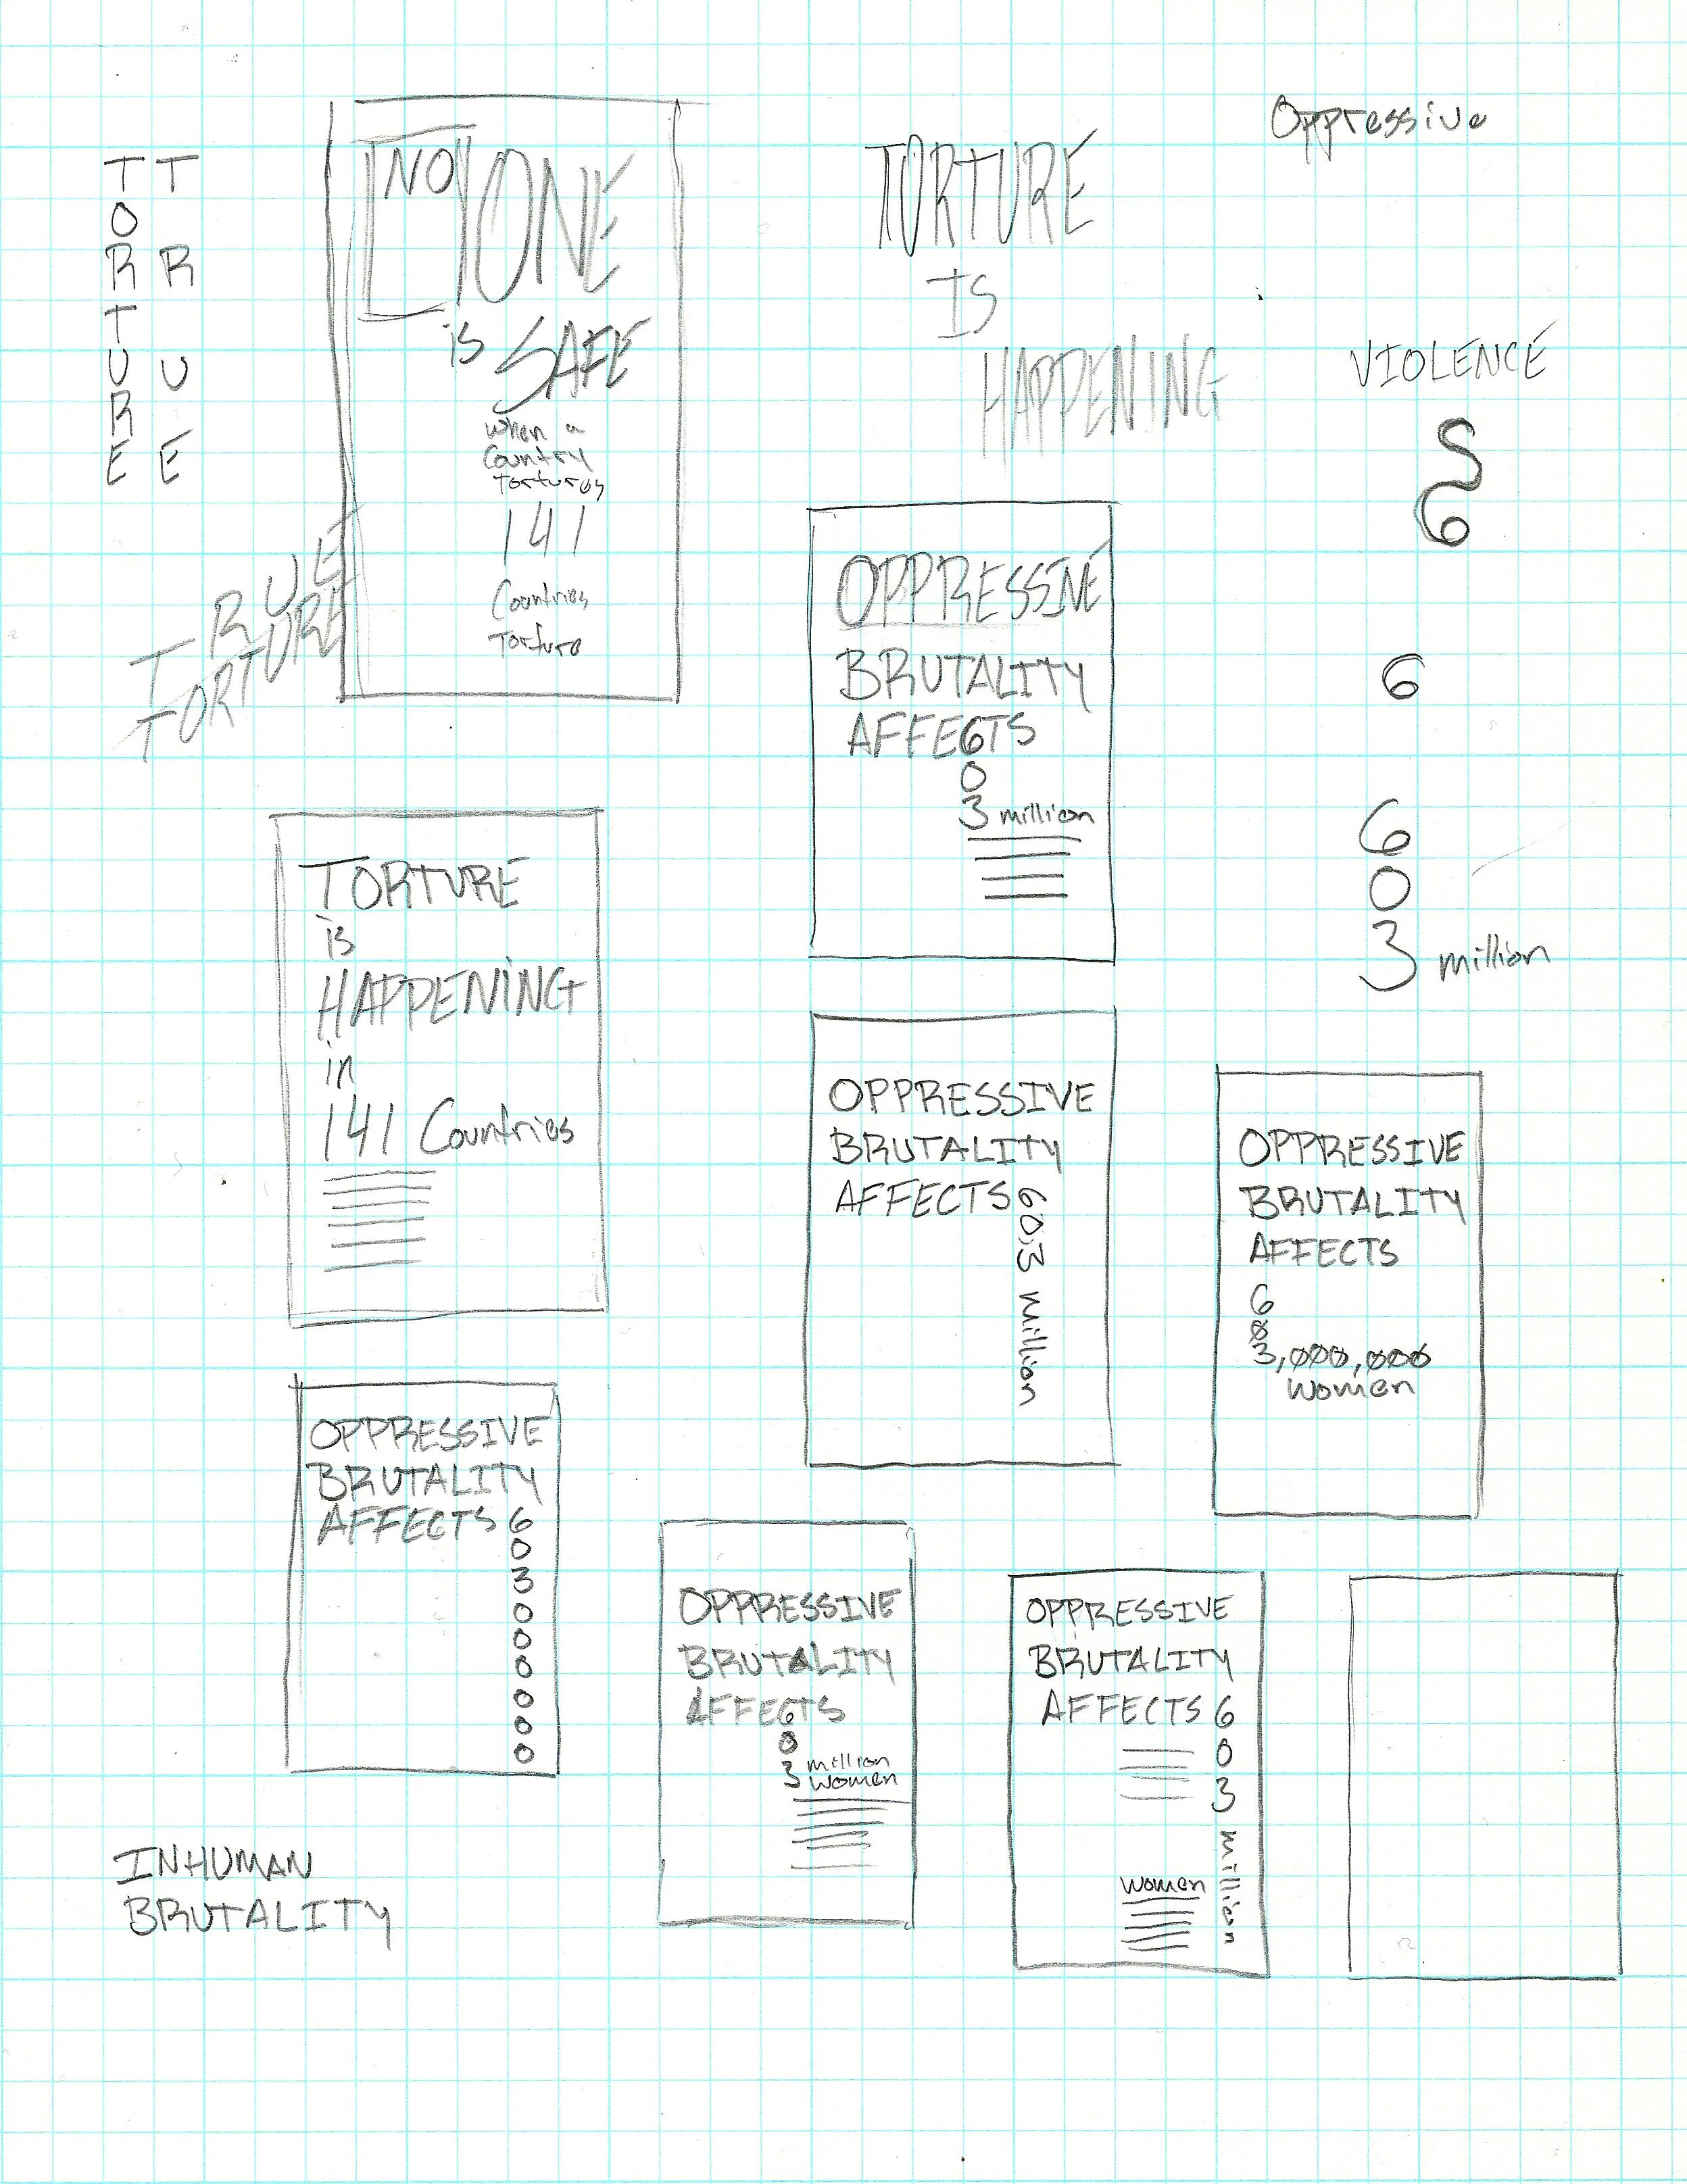 Oppressive
T T
O
R R
T
U U
R
E E
NO
YONE
is SAFE
when a
Country
Tortures
141
Countries
Torture
TORTURE
IS
HAPPENING
VIOLENCE
S
6
TRUE
TORTURE
OPPRESSIVE
BRUTALITY
AFFE6TS
0
3 million
6
6
0
3 million
TORTURE
is
HAPPENING
in
141 Countries
OPPRESSIVE
BRUTALITY
AFFECTS 60.3 million
OPPRESSIVE
BRUTALITY
AFFECTS
6
0
3,000,000
women
OPPRESSIVE
BRUTALITY
AFFECTS 6
0
3
0
0
0
0
0
0
OPPRESSIVE
BRUTALITY
AFFE6TS
0
3 million
women
OPPRESSIVE
BRUTALITY
AFFECTS 6
0
3
million
women
INHUMAN
BRUTALITY